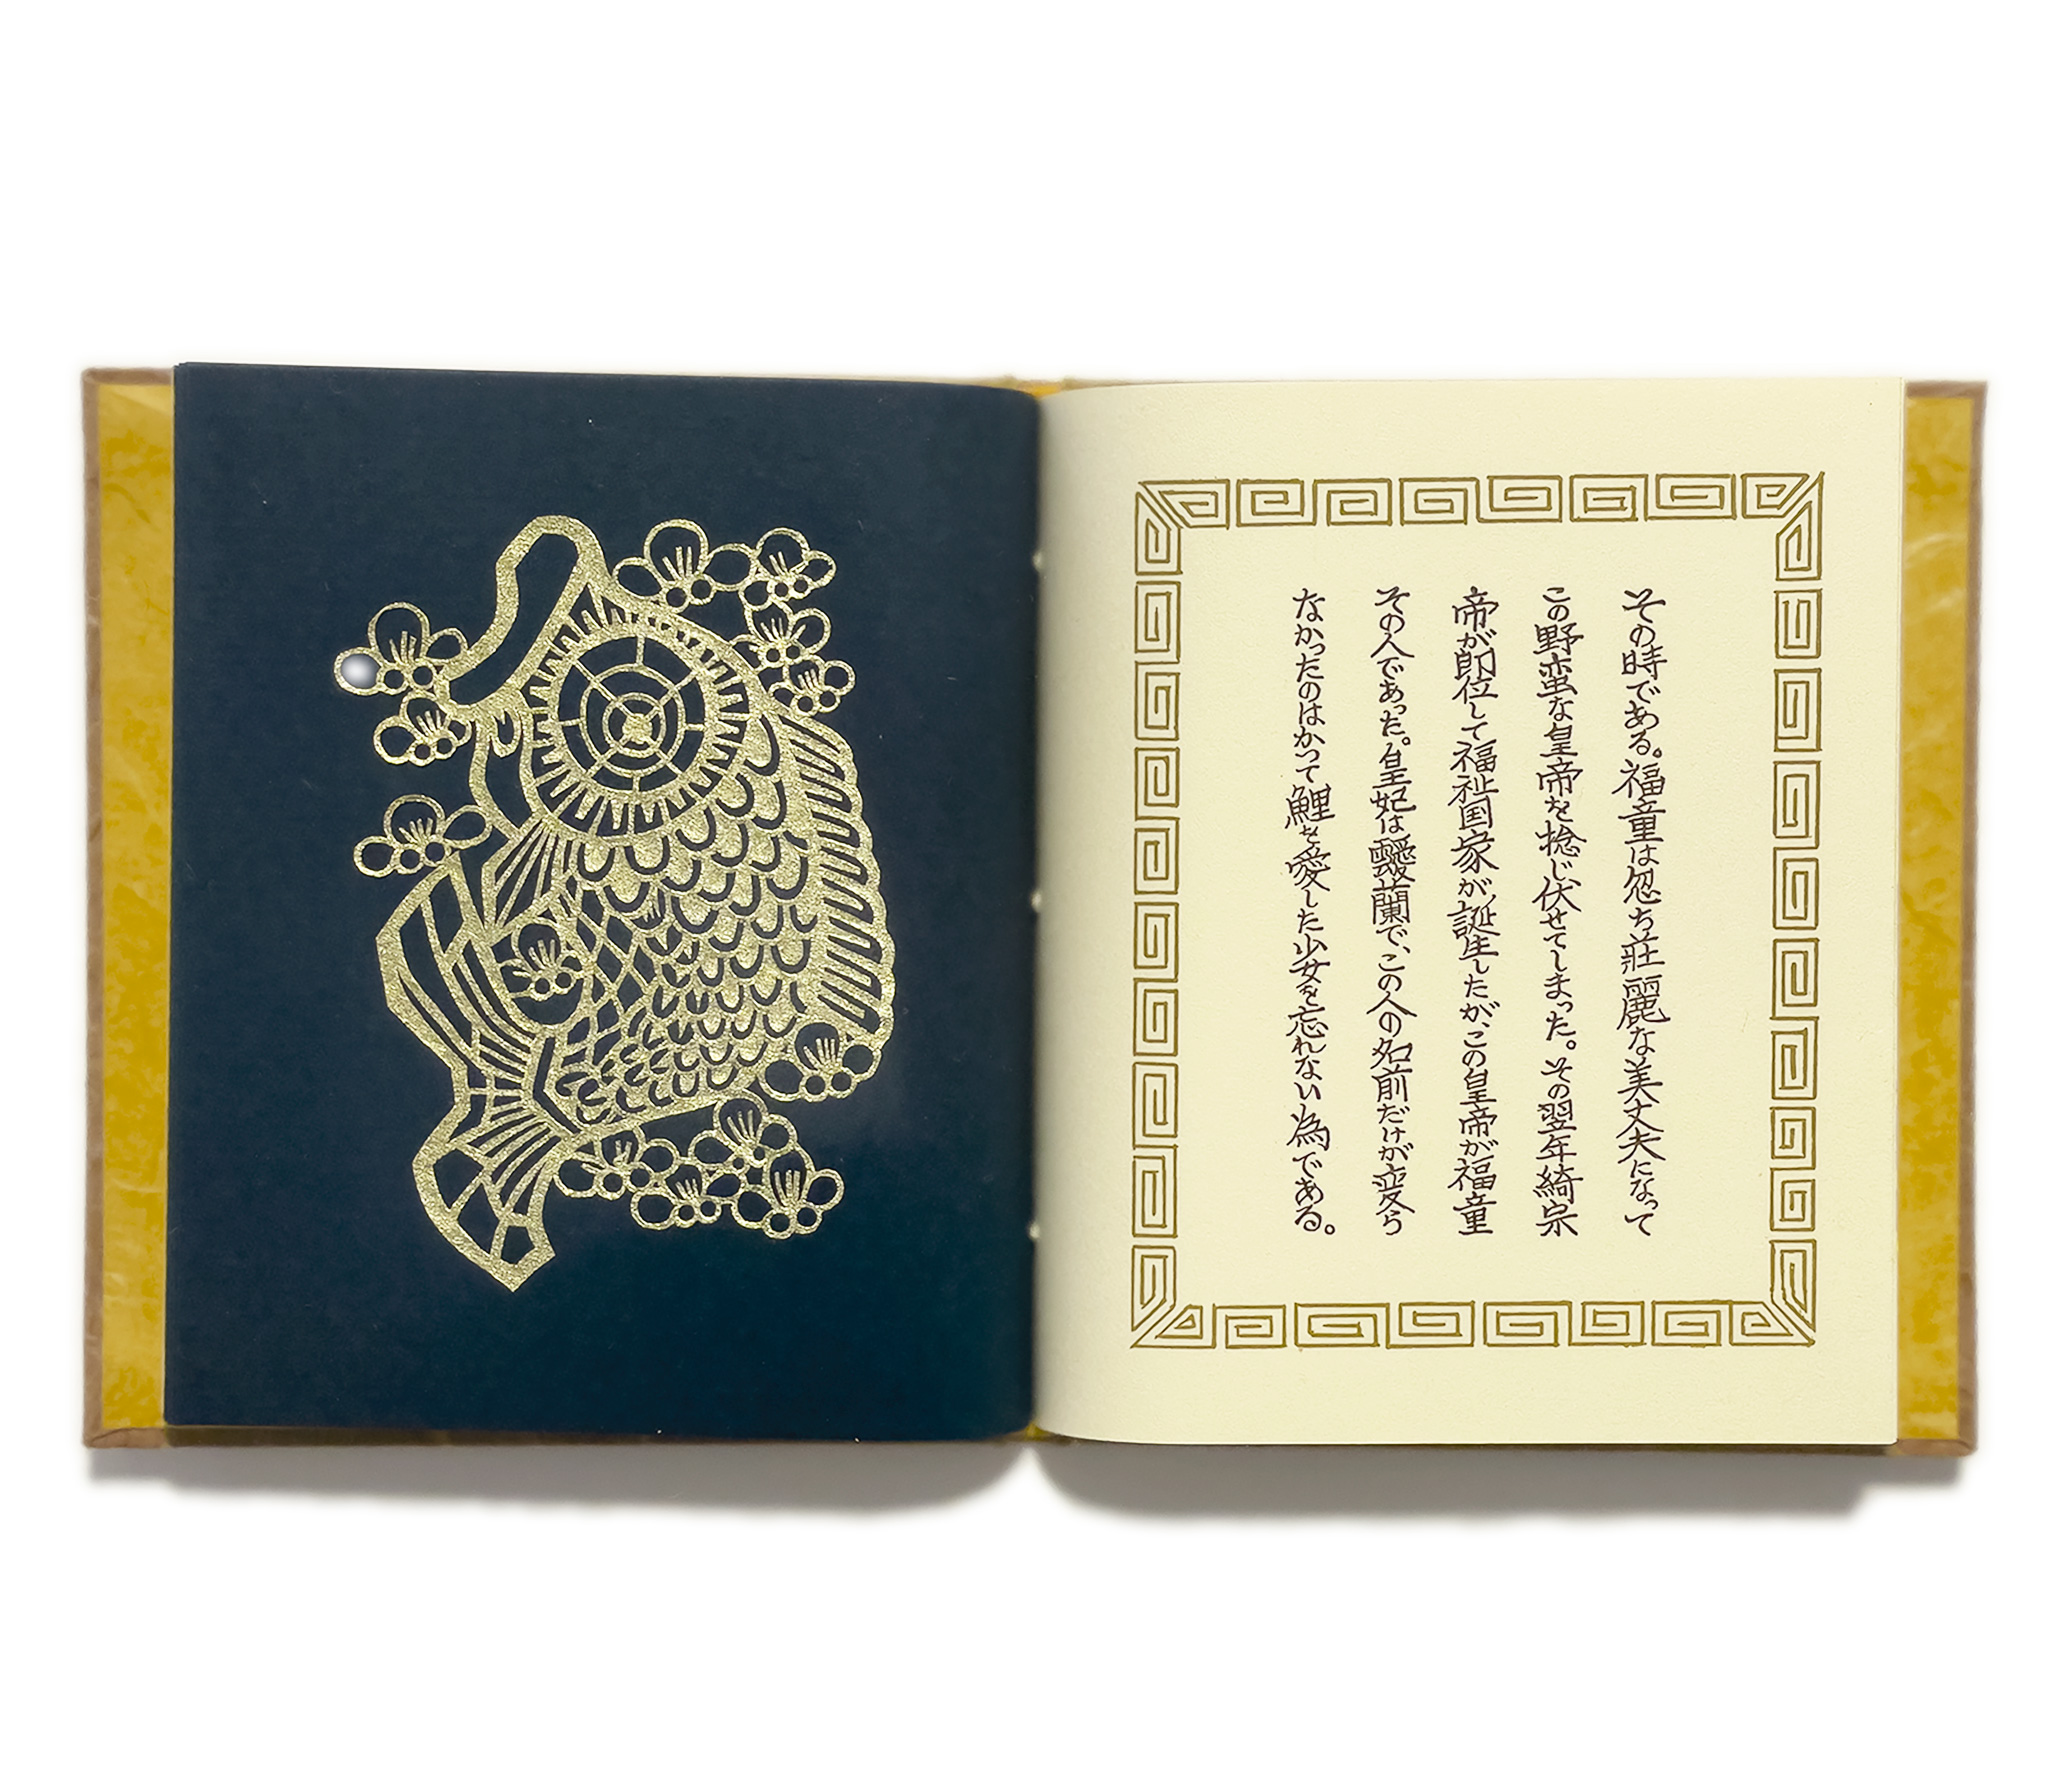 その時である。福童は忽ち荘麗な美丈夫になって
この野蛮な皇帝を捻じ伏せてしまった。その翌年綺宗
帝が即位して福祉国家が誕生したが、この皇帝が福童
その人であった。皇妃は靉蘭で、この人の名前だけが変ら
なかったのはかつて鯉を愛した少女を忘れない為である。